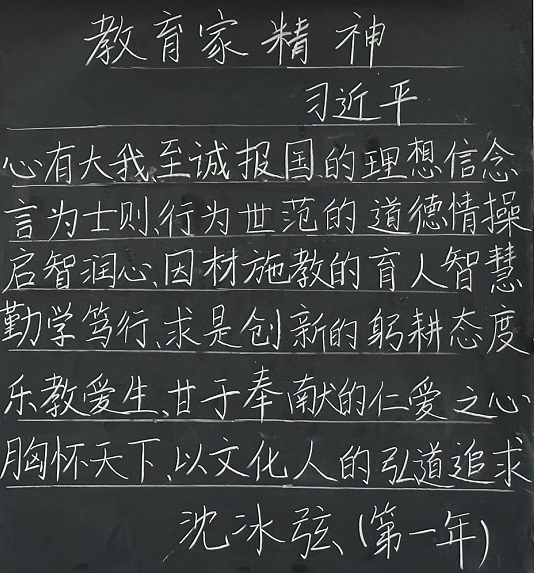 教育家精神
习近平
心有大我、至诚报国的理想信念
言为士则、行为世范的道德情操
启智润心、因材施教的育人智慧
勤学笃行、求是创新的躬耕态度
乐教爱生、甘于奉献的仁爱之心
胸怀天下、以文化人的弘道追求
沈冰弦(第一年)